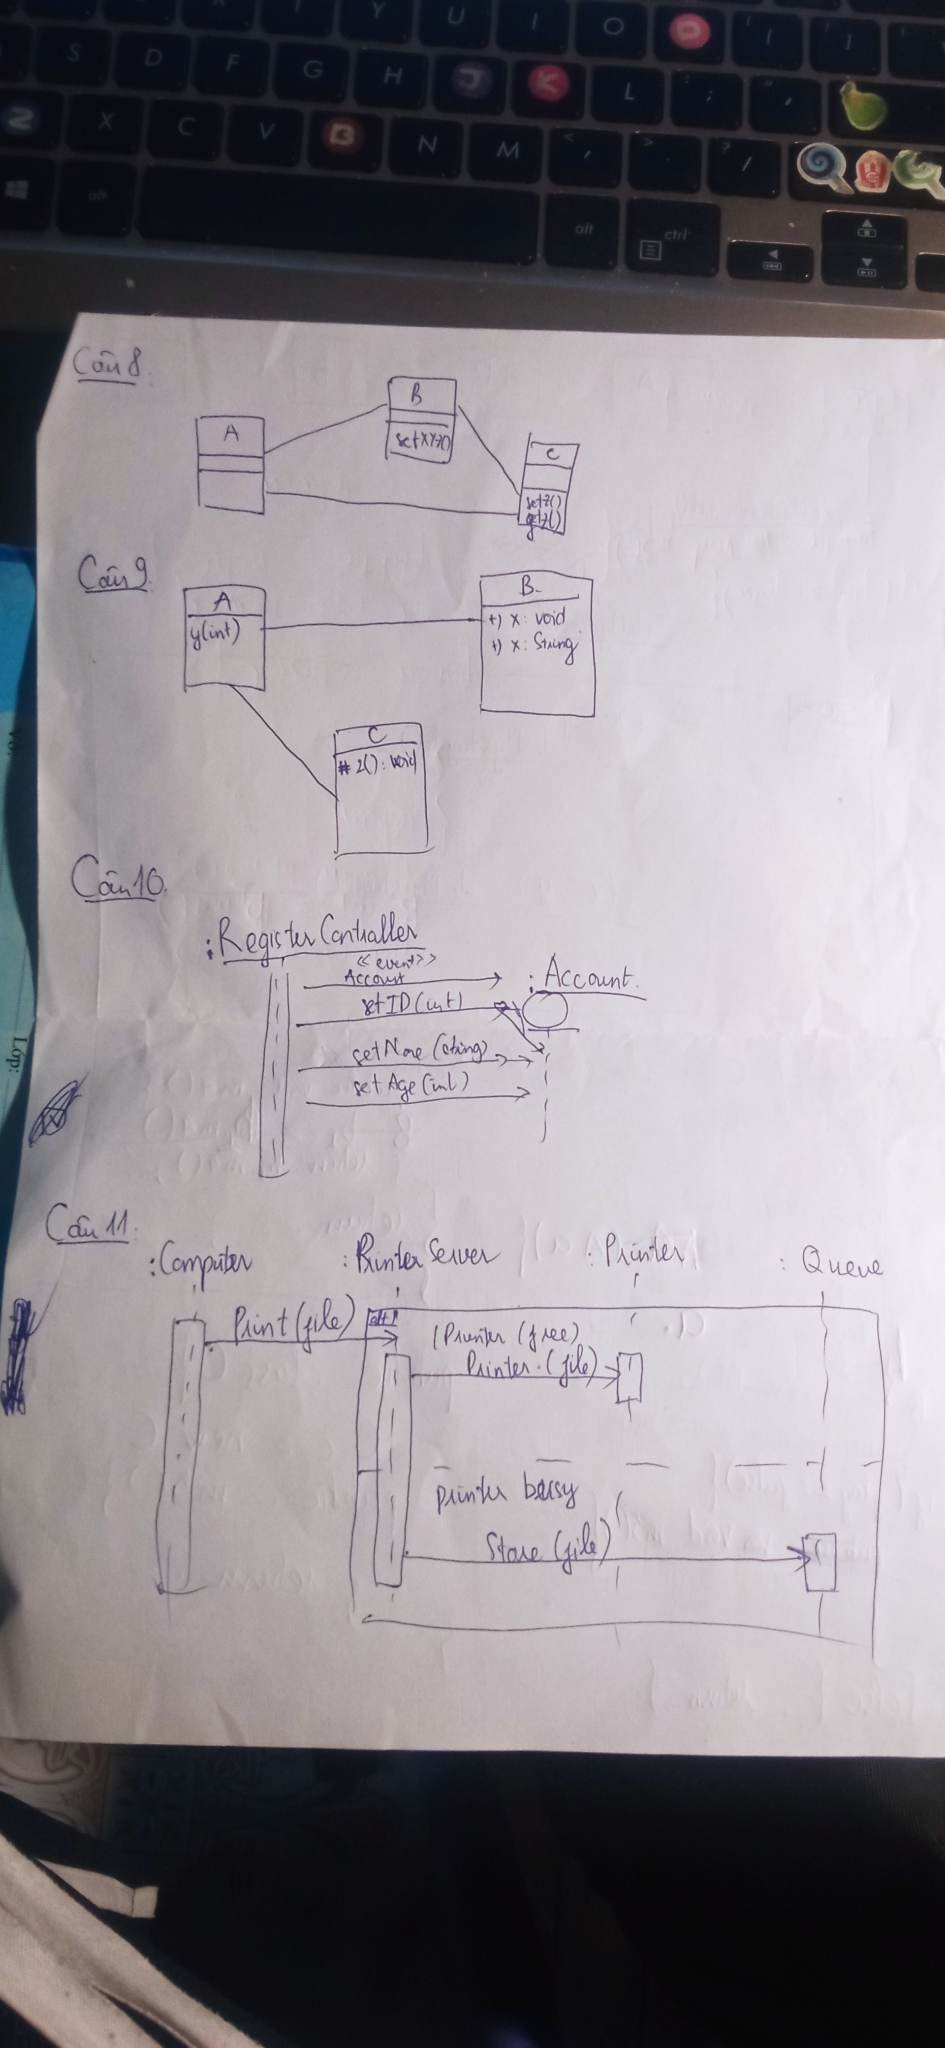 Y U I O P [
S D F G H J K L ; ]
Z X C V B N M < , > . ? /
alt alt ctrl
Câu 8.
A
B
setXYZ()
C
setZ()
getZ()
Câu 9.
A
y(int)
B
+) x: void
+) x: String
C
# z(): void
Câu 10.
:RegisterContraller
<<event>>
Account
: Account.
setID(int)
setNae (string)
set Age(int)
Lớp:
Câu 11.
:Computer :Printer Server :Printer : Queue
Print(file)
alt
[Prunter (free)
Printer.(file)
printer busy
Store (file)